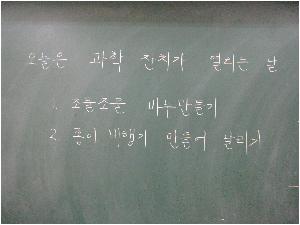 오늘은 과학 잔치가 열리는 날
1. 조물조물 비누만들기
2. 종이 비행기 만들어 날리기